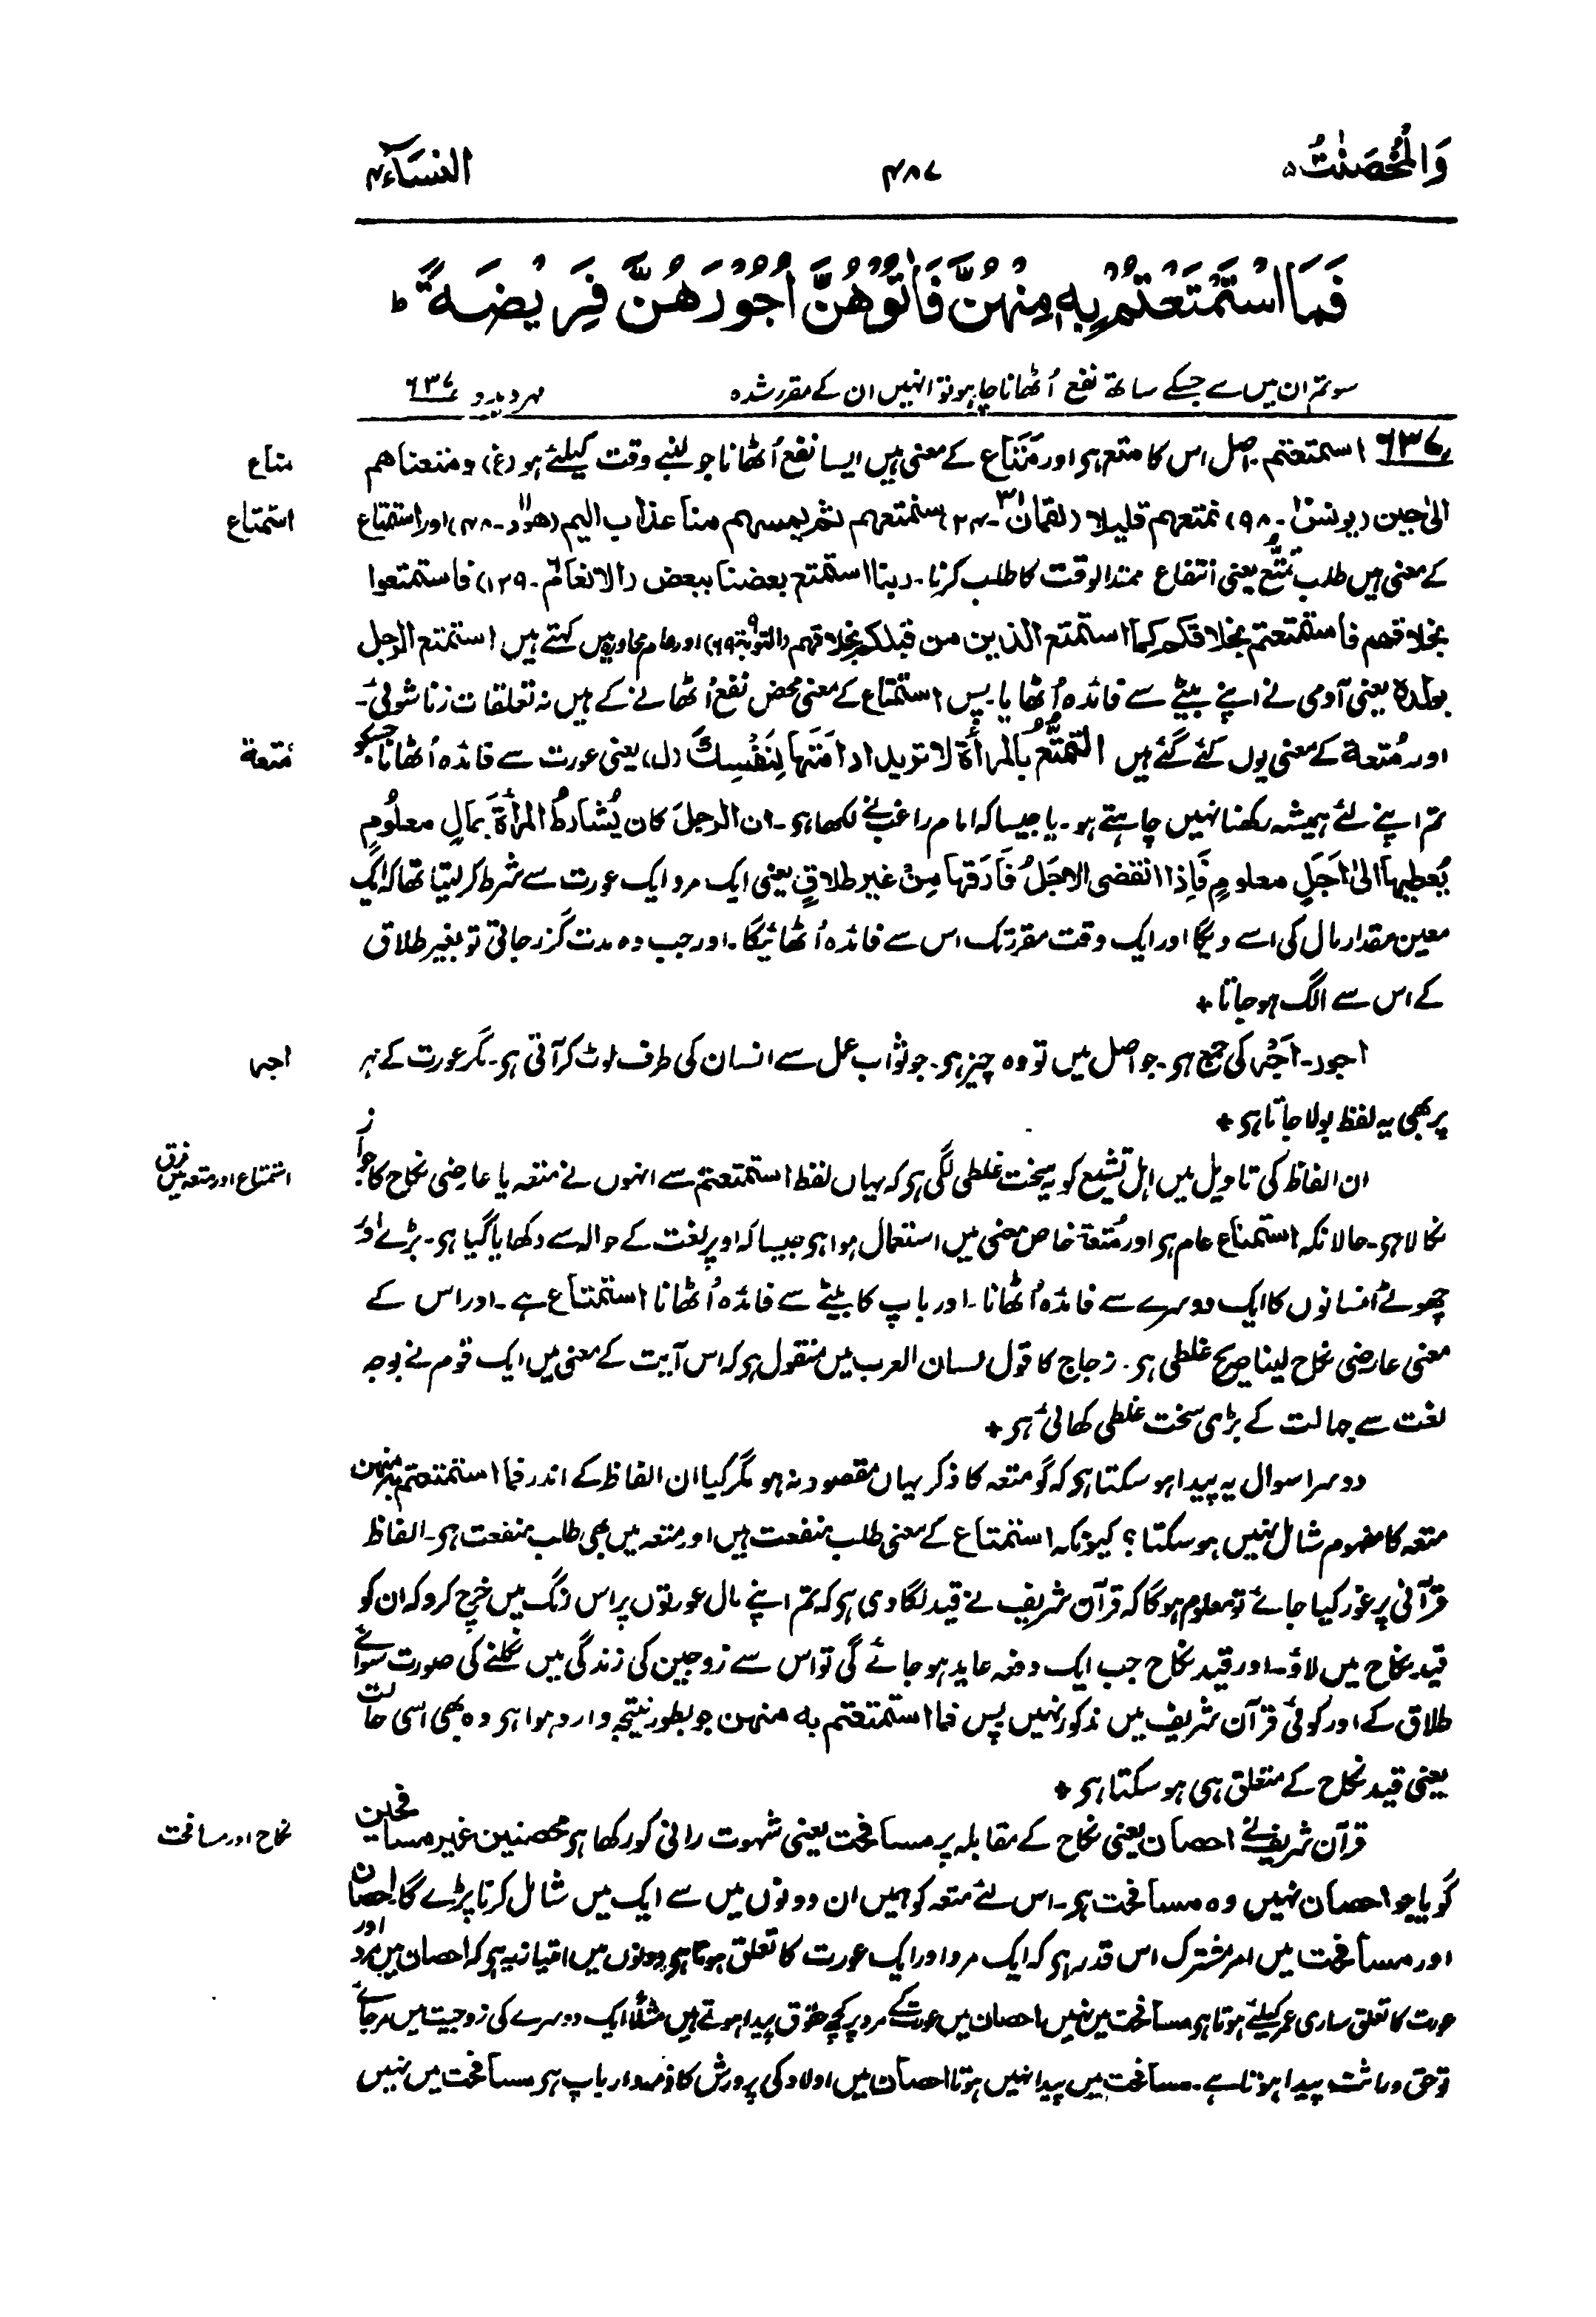 وَالْمُحْصَنٰتُ ۵
۴۸۷
النِّسَآء ۴
فَمَا اسْتَمْتَعْتُمْ بِهٖ مِنْهُنَّ فَاٰتُوْهُنَّ اُجُوْرَهُنَّ فَرِيْضَةً ؕ
سو تم ان میں سے جسکے ساتھ نفع اُٹھانا چاہو تو انہیں ان کے مقرر شدہ مہر دیدو ۶۳۷
۶۳۷ استمتعتم۔ اصل اس کا متع ہے اور مَتَاع کے معنی ہیں ایسا نفع اُٹھانا جو لنبے وقت کیلئے ہو (غ) ومتعناهم
متاع
الیٰ حین (یونس۱۰۔۹۸) نمتعهم قلیلا (لقمان۳۱۔۲۴) سنمتعهم ثم یمسهم منا عذاب الیم (هود۱۱۔۴۸) اور استمتاع
استمتاع
کے معنی ہیں طلب تمتُّع یعنی انتفاع ممتد الوقت کا طلب کرنا۔ ربنا استمتع بعضنا ببعض (الانعام۶۔۱۲۹) فاستمتعوا
بخلاقهم فاستمتعتم بخلاقکم کما استمتع الذین من قبلکم بخلاقهم (التوبة۹۔۶۹) اور عام محاورہ میں کہتے ہیں استمتع الرجل
بولدہ یعنی آدمی نے اپنے بیٹے سے فائدہ اُٹھایا۔ پس استمتاع کے معنی محض نفع اُٹھانے کے ہیں نہ تعلقات زنا شوئی۔
اور مُتعة کے معنی یوں کئے گئے ہیں التمتُّعُ بالمرأۃ لا ترید ادامَتَها لِنَفْسِكَ (ل) یعنی عورت سے فائدہ اُٹھانا جسکو
مُتعة
تم اپنے لئے ہمیشہ رکھنا نہیں چاہتے ہو۔ یا جیسا کہ امام راغب نے لکھا ہے۔ ان الرجلَ کان یُشارطُ المرأۃَ بمالٍ معلُومٍ
یُعطیها الیٰ اَجَلٍ معلومٍ فَاِذا انقضی الاجَلُ فَارَقها مِنْ غیر طلاقٍ یعنی ایک مرد ایک عورت سے شرط کر لیتا تھا کہ ایک
معین مقدار مال کی اسے دیگا اور ایک وقت مقرر تک اس سے فائدہ اُٹھائیگا۔ اور جب وہ مدت گزر جاتی تو بغیر طلاق
کے اس سے الگ ہو جاتا +
اجور۔ اَجْر کی جمع ہے۔ جو اصل میں تو وہ چیز ہے۔ جو ثواب عمل سے انسان کی طرف لوٹ کر آتی ہے۔ مگر عورت کے مہر
اجر
پر بھی یہ لفظ بولا جاتا ہے +
ان الفاظ کی تاویل میں اہل تشیع کو یہ سخت غلطی لگی ہے کہ یہاں لفظ استمتعتم سے انہوں نے متعہ یا عارضی نکاح کا جواز
استمتاع اور متعہ میں فرق
نکالا ہے۔ حالانکہ استمتاع عام ہے اور مُتعة خاص معنی میں استعمال ہوا ہے جیسا کہ اوپر لغت کے حوالہ سے دکھایا گیا ہے۔ بڑے اور
چھوٹے انسانوں کا ایک دوسرے سے فائدہ اُٹھانا۔ اور باپ کا بیٹے سے فائدہ اُٹھانا استمتاع ہے۔ اور اس کے
معنی عارضی نکاح لینا صریح غلطی ہے۔ زجاج کا قول لسان العرب میں منقول ہے کہ اس آیت کے معنی میں ایک قوم نے بوجہ
لغت سے جہالت کے بڑی سخت غلطی کھائی ہے +
دوسرا سوال یہ پیدا ہو سکتا ہے کہ گو متعہ کا ذکر یہاں مقصود نہ ہو مگر کیا ان الفاظ کے اندر فما استمتعتم بہ منہن
متعہ کا مفہوم شامل نہیں ہو سکتا؟ کیونکہ استمتاع کے معنی طلب منفعت ہیں اور متعہ میں بھی طلب منفعت ہے۔ الفاظ
قرآنی پر غور کیا جائے تو معلوم ہوگا کہ قرآن شریف نے قید لگا دی ہے کہ تم اپنے مال عورتوں پر اس رنگ میں خرچ کرو کہ ان کو
قید نکاح میں لاؤ۔ اور قید نکاح جب ایک دفعہ عاید ہو جائے گی تو اس سے زوجین کی زندگی میں نکلنے کی صورت سوائے
طلاق کے اور کوئی قرآن شریف میں مذکور نہیں پس فما استمتعتم به منهن جو بطور نتیجہ وارد ہوا ہے وہ بھی اسی حالت
یعنی قید نکاح کے متعلق ہی ہو سکتا ہے +
قرآن شریف نے احصان یعنی نکاح کے مقابلہ پر مسافحت یعنی شہوت رانی کو رکھا ہے محصنین غیر مسافحین
نکاح اور مسافحت
گویا جو احصان نہیں وہ مسافحت ہے۔ اس لئے متعہ کو ہمیں ان دونوں میں سے ایک میں شامل کرنا پڑے گا۔ احصان
اور مسافحت میں امر مشترک اس قدر ہے کہ ایک مرد اور ایک عورت کا تعلق ہوتا ہے دونوں میں امتیاز یہ ہے کہ احصان میں مرد اور
عورت کا تعلق ساری عمر کیلئے ہوتا ہے مسافحت میں نہیں احصان میں عورت کے مرد پر کچھ حقوق پیدا ہوتے ہیں مثلاً ایک دوسرے کی زوجیت میں مر جائے
تو حق وراثت پیدا ہوتا ہے۔ مسافحت میں پیدا نہیں ہوتا احصان میں اولاد کی پرورش کا ذمہ وار باپ ہے مسافحت میں نہیں